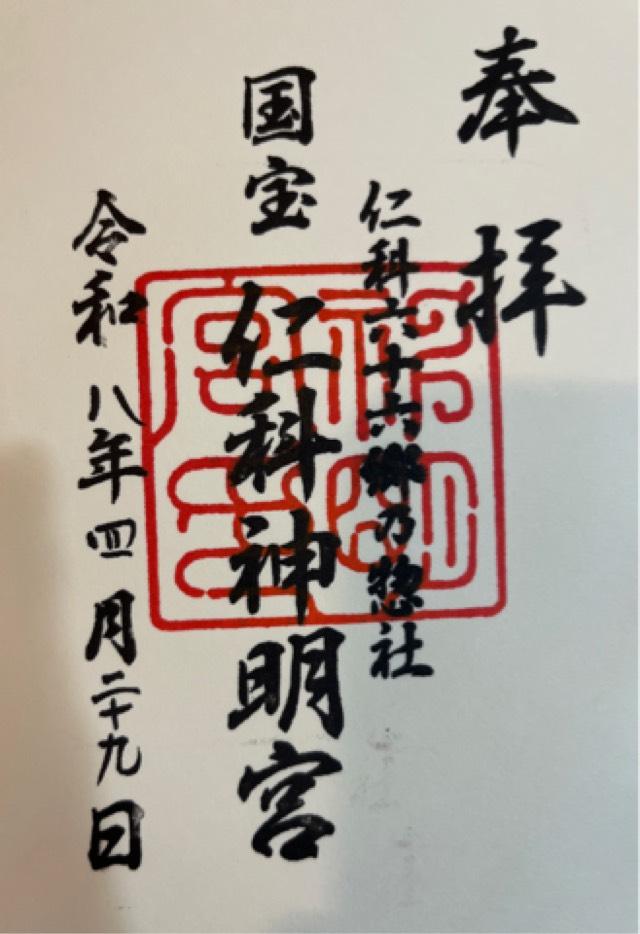 奉拝
仁科六十六郷乃惣社
国宝 仁科神明宮
令和八年四月二十九日